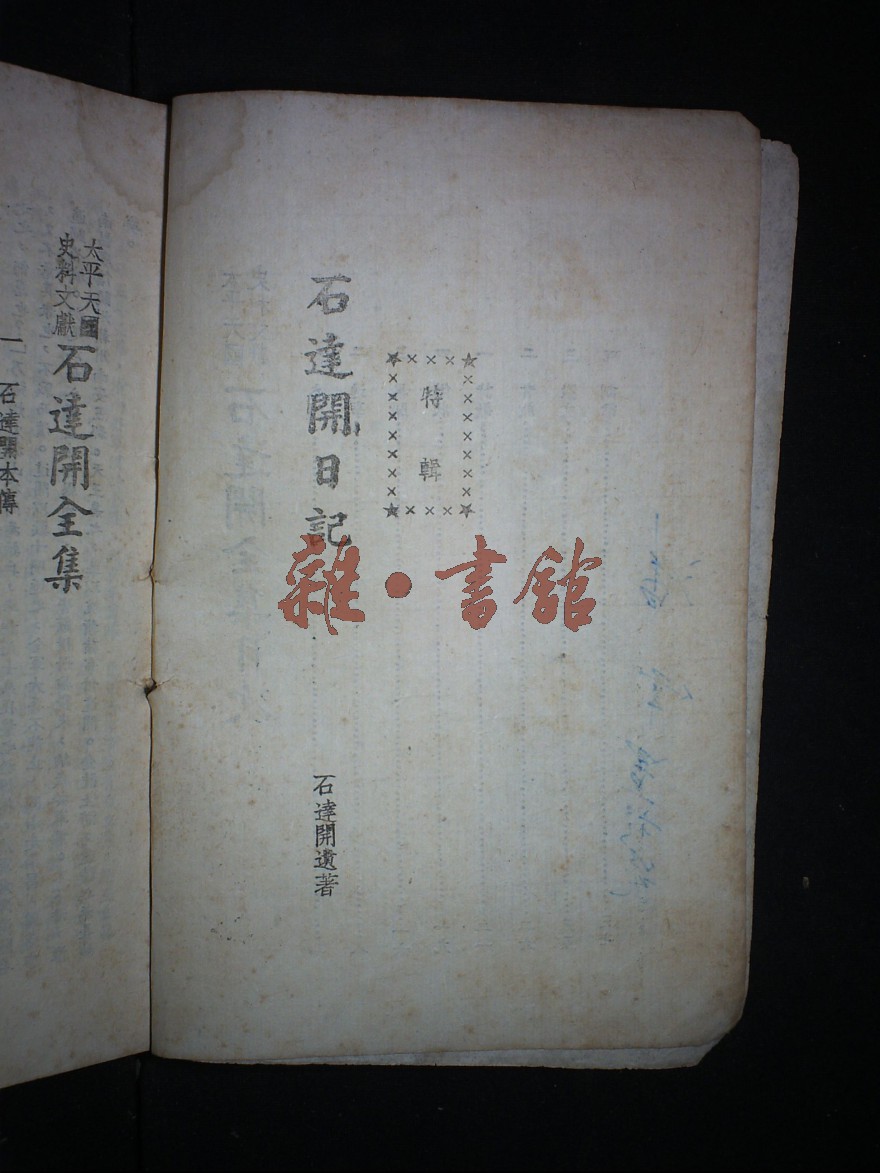 特輯
石達開日記
石達開遺著
太平天國
史料文獻
石達開全集
一 石達開本傳
雜·書館